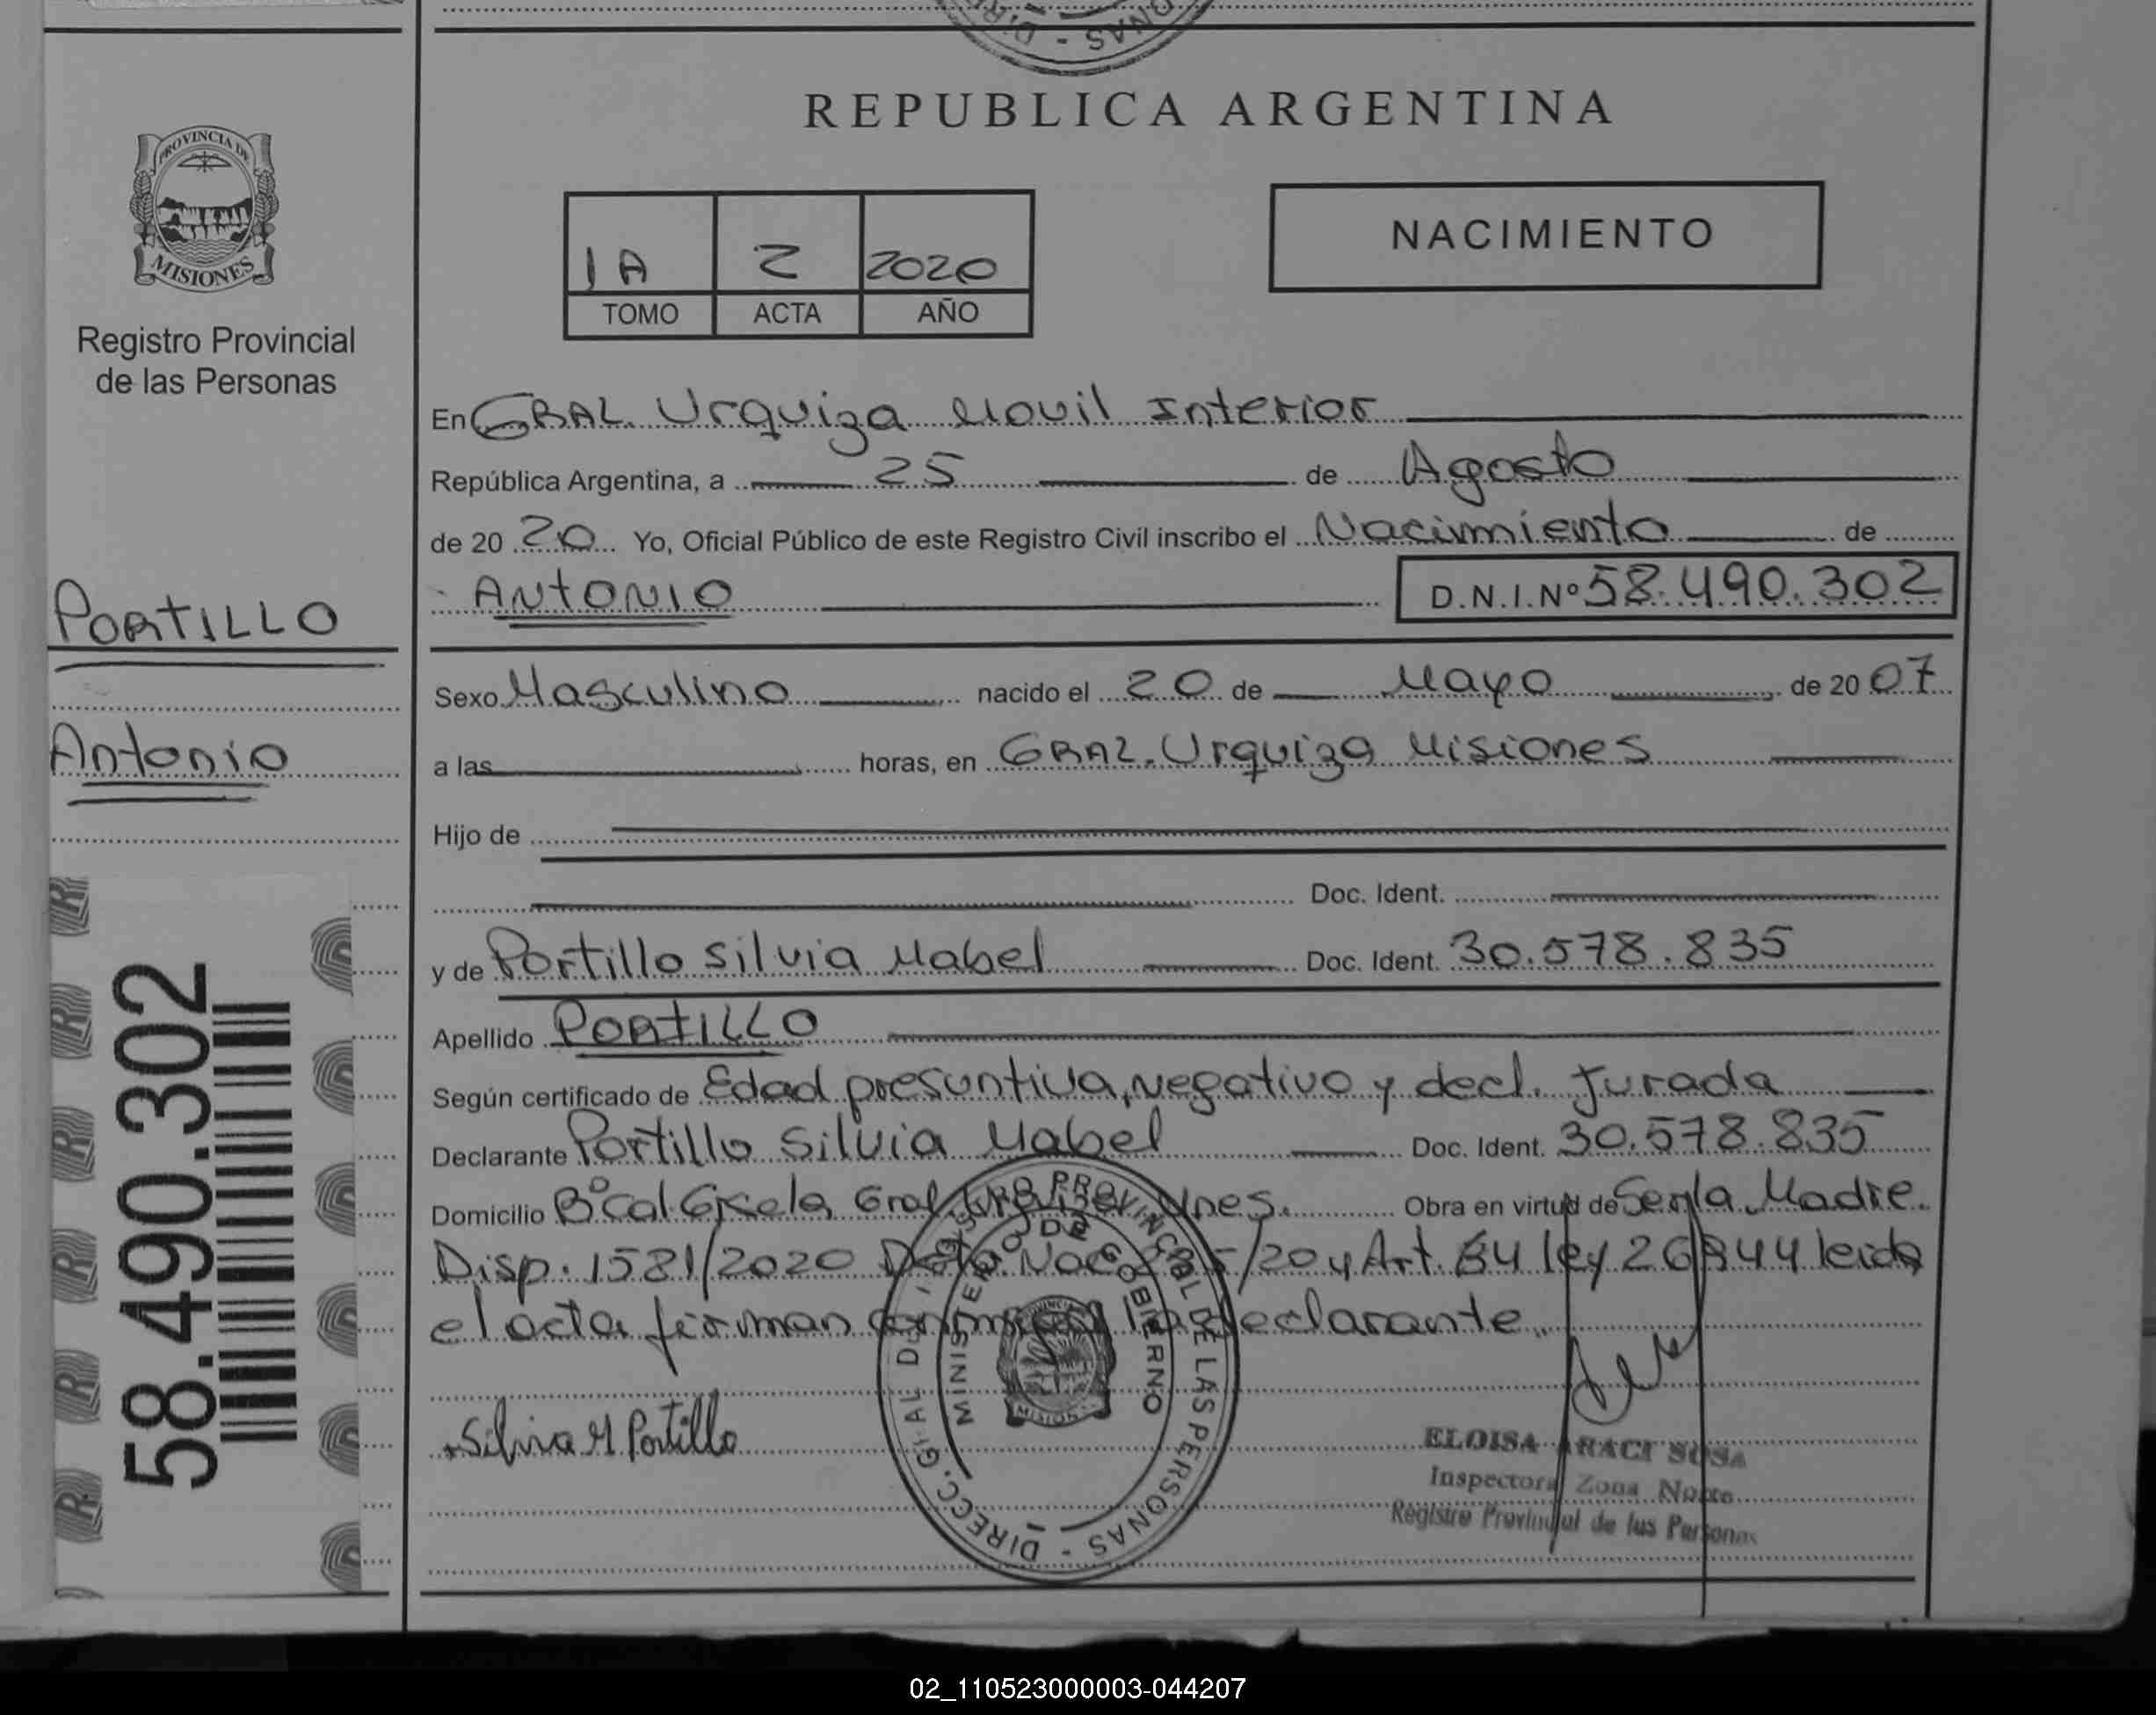 REPUBLICA ARGENTINA
PROVINCIA DE
MISIONES
Registro Provincial
de las Personas
NACIMIENTO
1A 2 2020
TOMO ACTA AÑO
En GRAL. Urquiza Movil Interior
República Argentina, a 25 de Agosto
de 20 20 Yo, Oficial Público de este Registro Civil inscribo el Nacimiento de
ANTONIO D.N.I.Nº 58.490.302
PORTILLO
Antonio
Sexo Masculino nacido el 20 de Mayo de 20 07
a las horas, en GRAL. Urquiza Misiones
Hijo de
Doc. Ident.
y de Portillo Silvia Mabel Doc. Ident. 30.578.835
Apellido PORTILLO
Según certificado de Edad presuntiva, negativo y decl. Jurada
Declarante Portillo Silvia Mabel Doc. Ident. 30.578.835
Domicilio Bº Gral. Mnes. Obra en virtud de Ser la Madre.
Disp. 1581/2020 /20 y Art. ley leida
el acta firman la declarante.
Silvia M Portillo
MINISTERIO DE GOBIERNO
PROVINCIAL DE LAS PERSONAS
ELOISA ARACI SOSA
Inspectora Zona Norte
Registro Provincial de las Personas
58.490.302
02_110523000003-044207